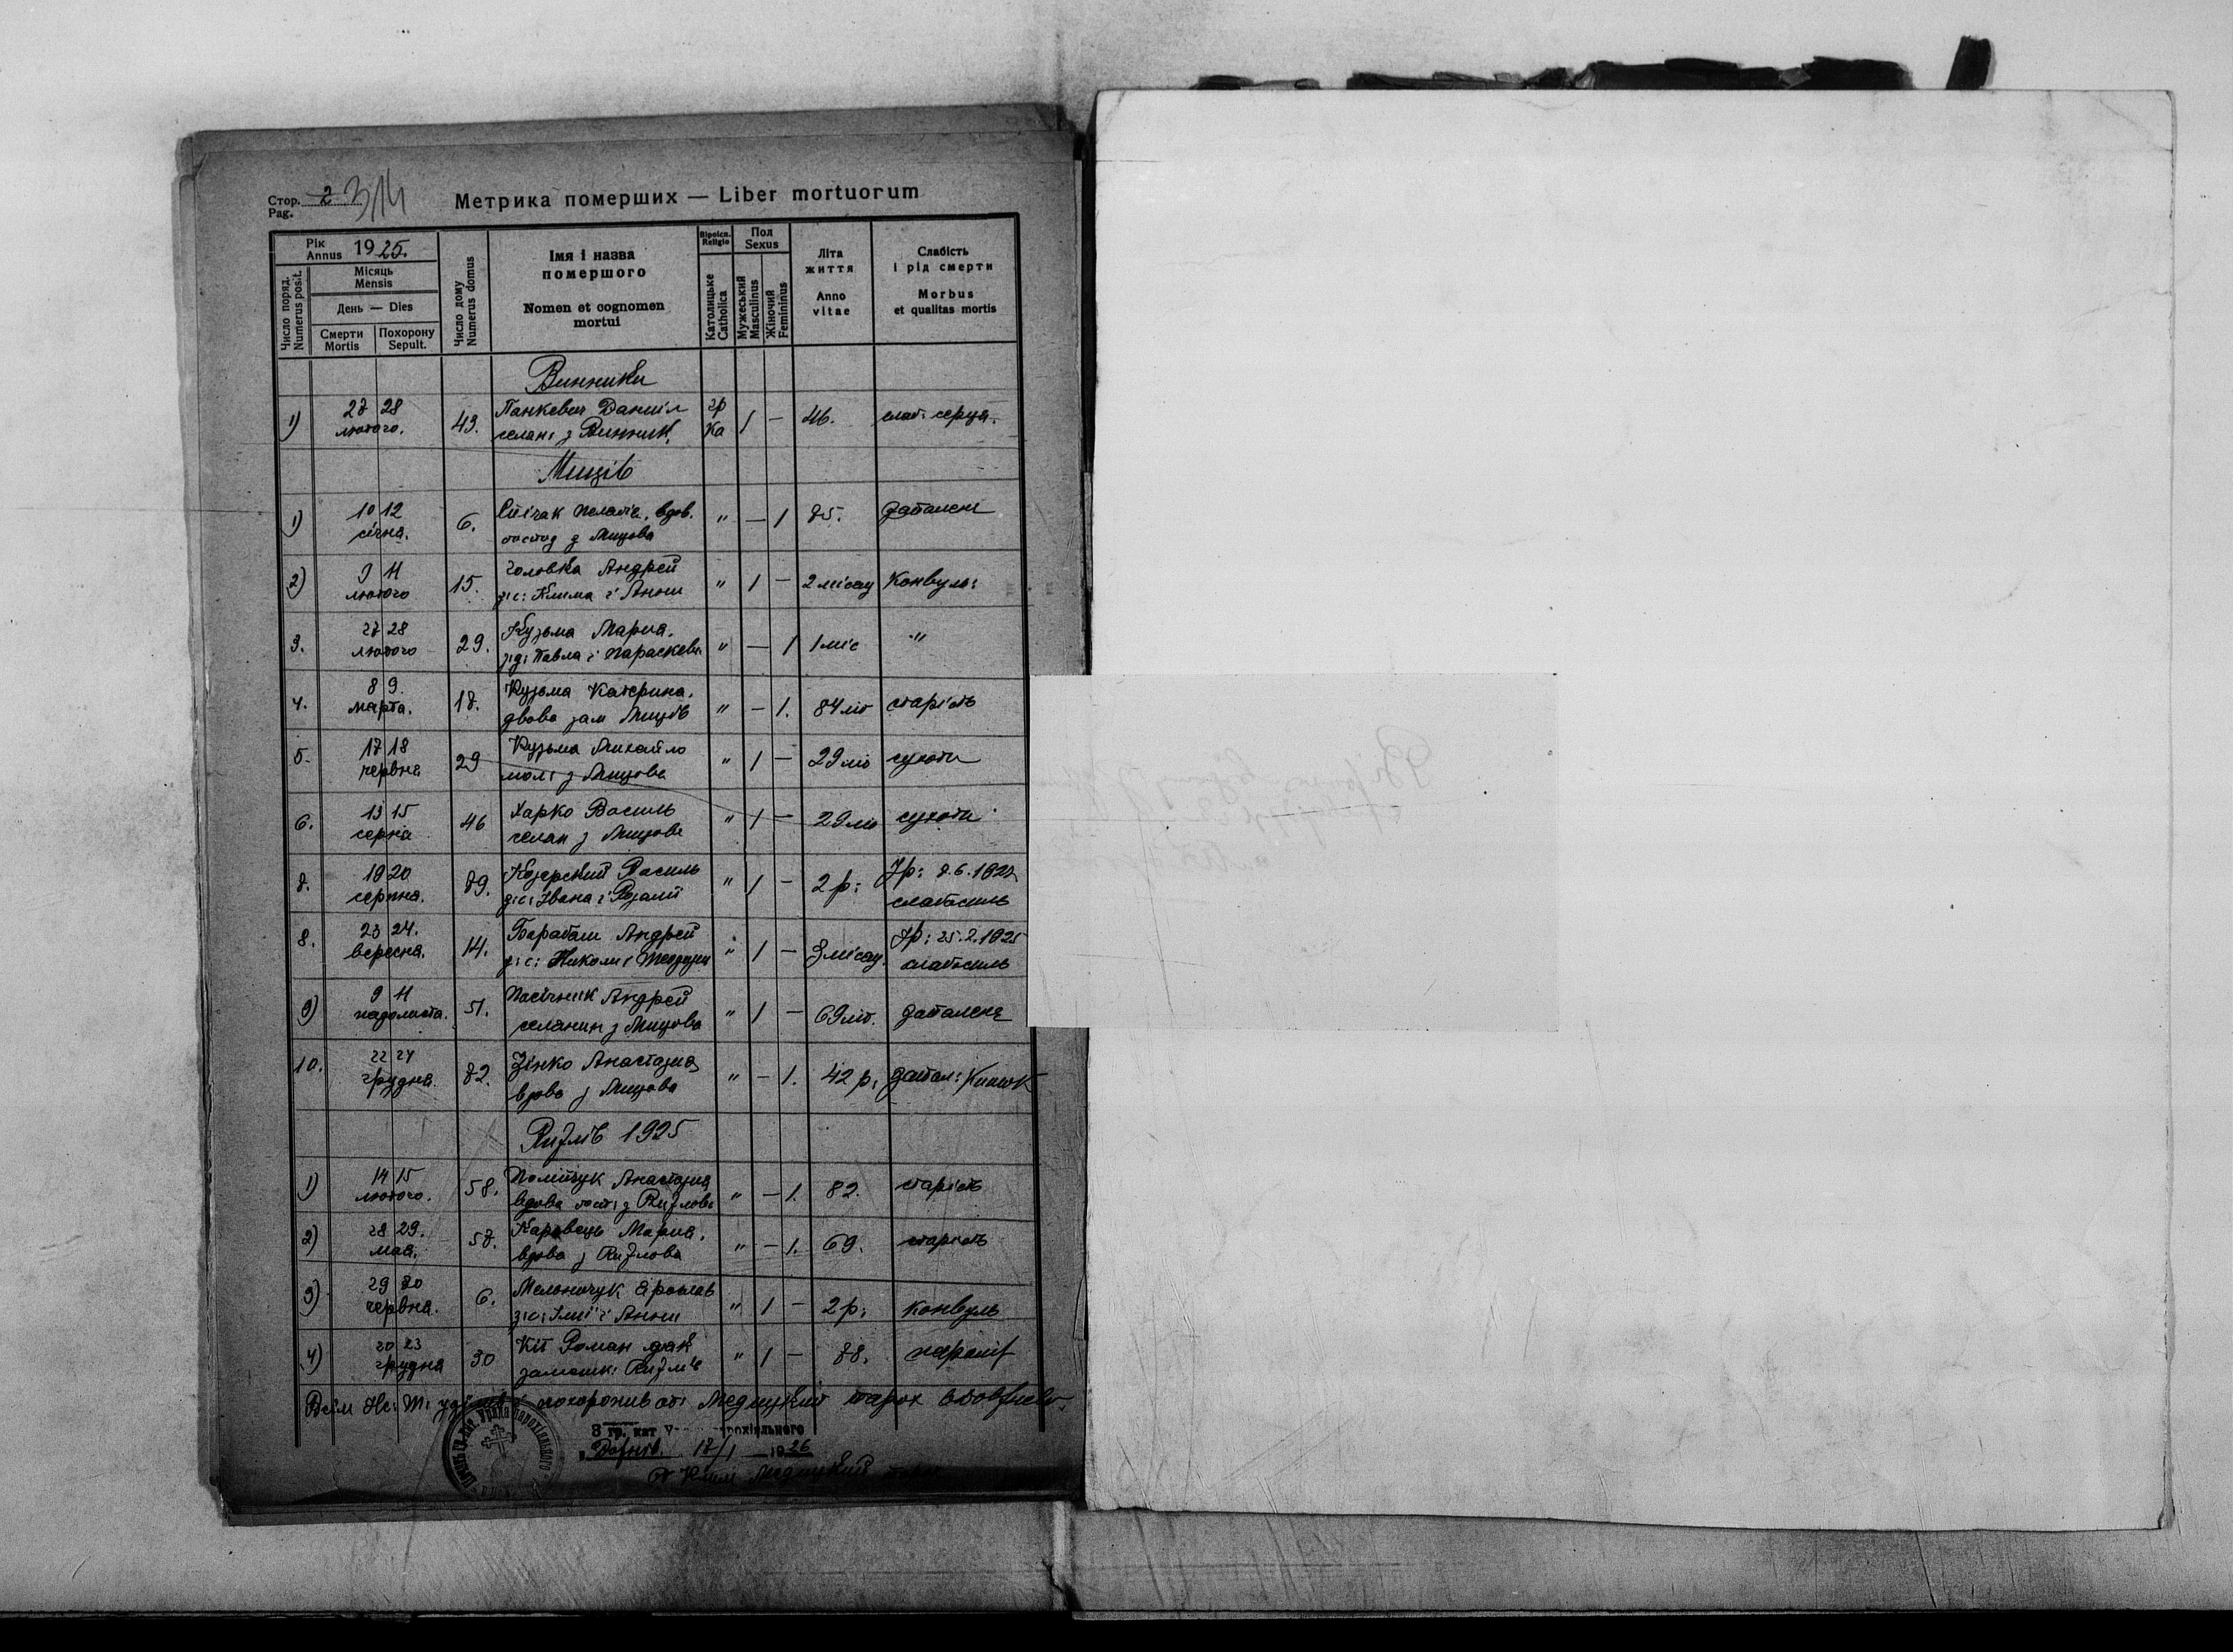 Стор. 2 314
Pag.
Метрика померших — Liber mortuorum
Рік
Annus 1925.
Число поряд.
Numerus posit.
Місяць
Mensis
День — Dies
Смерти
Mortis
Похорону
Sepult.
Число дому
Numerus domus
Імя і назва
помершого
Nomen et cognomen
mortui
Віроісп.
Religio
Католицьке
Catholica
Пол
Sexus
Мужеський
Masculinus
Жіночий
Femininus
Літа
життя
Anno
vitae
Слабість
і рід смерти
Morbus
et qualitas mortis
Винники
1) 27 28 43. Панкевич Даниїл гр 1 — 46. слаб: серця.
лютого. селян: з Винник. ка
Миців
1) 10 12 6. Пелагія, вдов. " — 1 75.
січня. з Мицова
2) 9 11 15. Головка Андрей " 1 — 2 місяц Конвуль:
лютого з: с: Клима і Анни
3. 27 28 29. Кузьма Мария. " — 1 1 міс "
лютого з: д: Павла і Параскеви
4. 8 9. 17. Кузьма Катерина. " — 1. 84 літ старість
марта. вдова зам Миців
5. 17 18 29 Кузьма Михайло " 1 — 29 літ сухоти
червня з Мицова
6. 13 15 46 Харко Василь " 1 — 29 літ сухоти
серпня селян з Мицова
7. 19 20 79. Василь " 1 — 2 р: Ур: 7.6.192
серпня. з: с: Івана і Розалії слабосиль
8. 23 24. 14. Барабаш Андрей " 1 — місяц. Ур: 25.2.1925
вересня. з: с: Николи і слабосиль
9) 9 11 51. Пасічник Андрей " 1 — 69 літ. запаленє
падолиста. селянин з Мицова
10. 22 24 72. Зінко Анастазия " — 1. 42 р: запал: Кишок
грудня. вдова з Мицова
Ригилів 1925
1) 14 15 58. Анастазия " — 1. 82. старість
лютого. вдова
2) 28 29. 57. Каровець Мария. " — 1. 69. старість
мая. вдова з
3) 29 30 6. Мельничук Ярослав " 1 — 2 р: конвуль
червня. з: с: і Анни
4) 20 23 30 Кіт Роман дяк " 1 — 77.
грудня
Всім Н: Т: уділив і похоронив от: Медицкий парох
З гр. кат. Уряду парохіяльного
18/I 1926
от Клим Медицкий